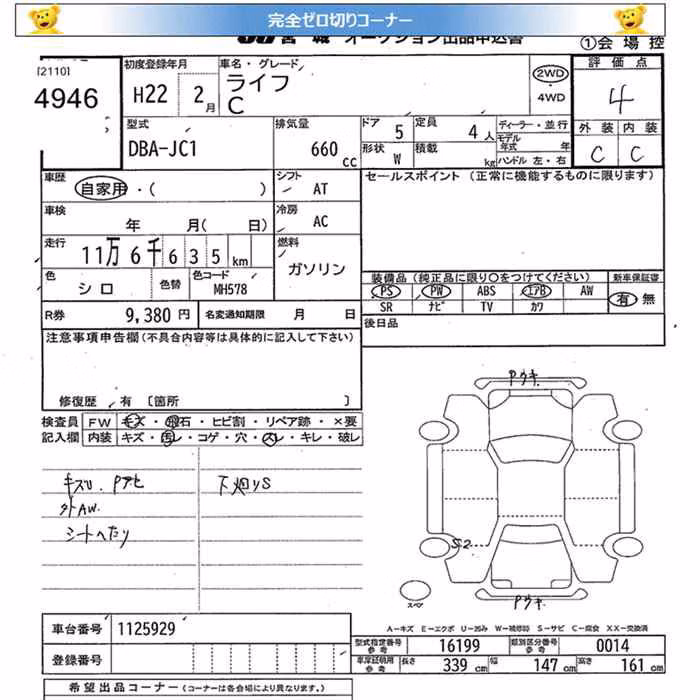 完全ゼロ切りコーナー
JU 宮城 オークション出品申込書 ①会場控
[2110]
4946
初度登録年月 H22 2月
車名・グレード ライフ
C
2WD
・4WD
評価点
4
外装 内装
C C
型式 DBA-JC1
排気量 660 cc
ドア 5
定員 4人
形状 W
積載 kg
ディーラー・並行
モデル年式 年
ハンドル 左・右
車歴 自家用・( )
シフト AT
セールスポイント (正常に機能するものに限ります)
車検 年 月( 日)
冷房 AC
走行 11万6千635km
燃料 ガソリン
色 シロ
色替
色コード MH578
装備品 (純正品に限り○をつけてください)
新車保証書
PS PW ABS エアB AW
SR ナビ TV カワ
有 無
R券 9,380円
名変通知期限 月 日
後日品
注意事項申告欄(不具合内容等は具体的に記入して下さい)
修復歴 有 〔箇所 〕
検査員 FW キズ・飛石・ヒビ割・リペア跡・×要
記入欄 内装 キズ・汚レ・コゲ・穴・スレ・キレ・破レ
キズU. Pアセ
外AW.
シートへたり
下廻りS
Pウキ
S2
スペア
Pウキ
A―キズ E―エクボ U―凹み W―補修跡 S―サビ C―腐食 XX―交換済
車台番号 1125929
登録番号
型式指定番号 参考 16199
類別区分番号 参考 0014
車庫証明用 参考 長さ 339 cm 幅 147 cm 高さ 161 cm
希望出品コーナー (コーナーは各会場により異なります)